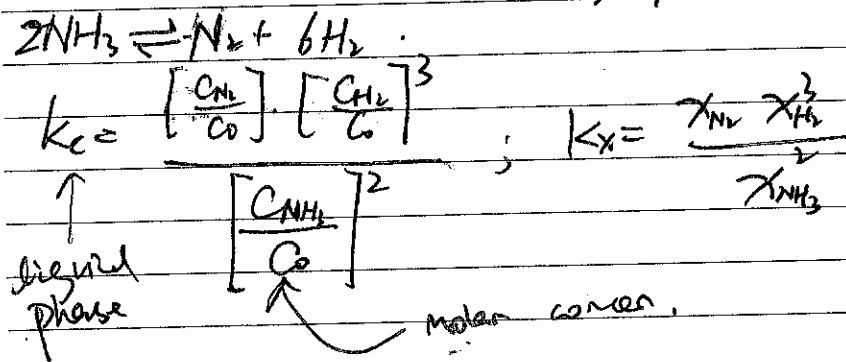 2NH₃ ⇌ N₂ + 6H₂ .
K_c = [C_N₂/C₀] · [C_H₂/C₀]³ / [C_NH₃/C₀]² ; K_x = x_N₂ x³_H₂ / x²_NH₃
↑
liquid
phase
molar concen.